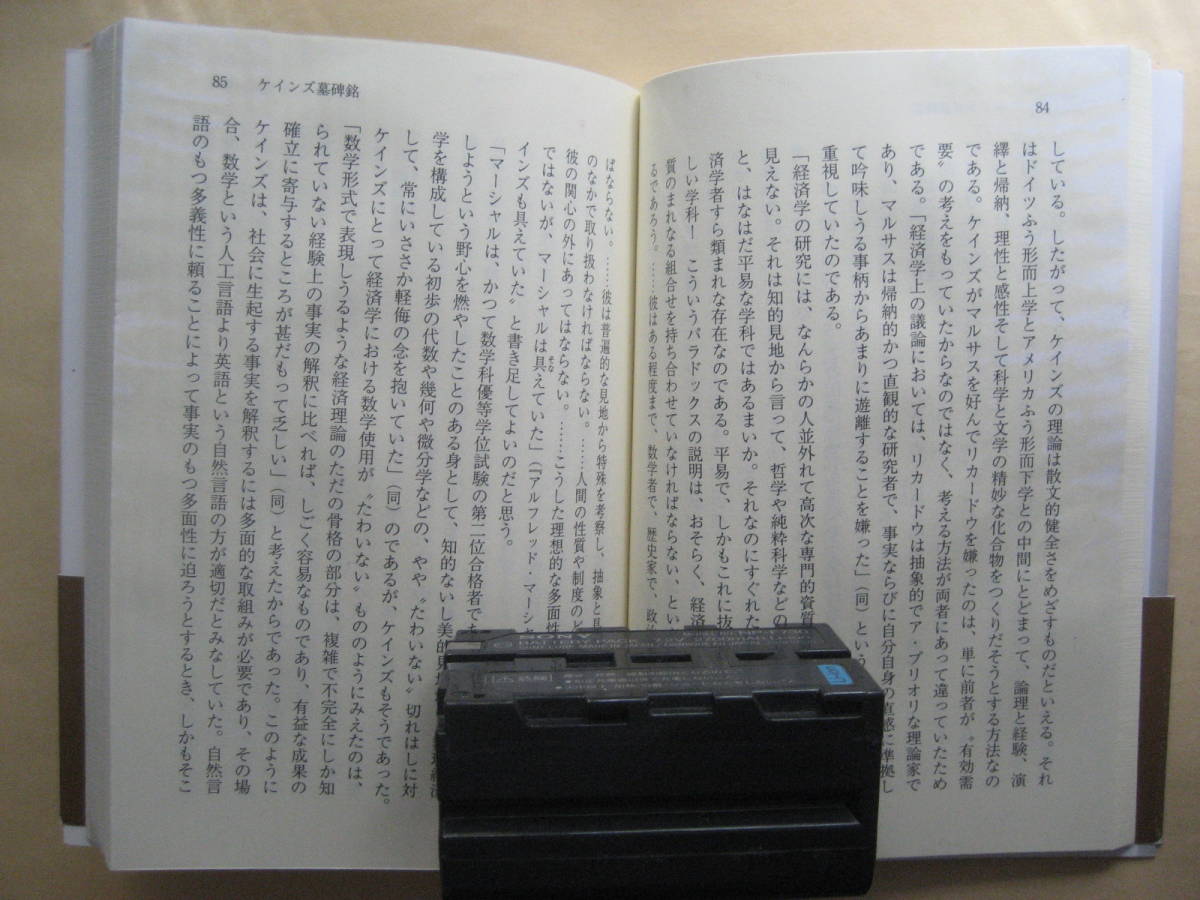 84
している。したがって、ケインズの理論は散文的健全さをめざすものだといえる。それ
はドイツふう形而上学とアメリカふう形而下学との中間にとどまって、論理と経験、演
繹と帰納、理性と感性そして科学と文学の精妙な化合物をつくりだそうとする方法なの
である。ケインズがマルサスを好んでリカードウを嫌ったのは、単に前者が〝有効需
要〟の考えをもっていたからなのではなく、考える方法が両者にあって違っていたため
である。「経済学上の議論においては、リカードウは抽象的でア・プリオリな理論家で
あり、マルサスは帰納的かつ直観的な研究者で、事実ならびに自分自身の直感に準拠し
て吟味しうる事柄からあまりに遊離することを嫌った」（同）という
重視していたのである。
「経済学の研究には、なんらかの人並外れて高次な専門的資質
見えない。それは知的見地から言って、哲学や純粋科学などの
と、はなはだ平易な学科ではあるまいか。それなのにすぐれた
済学者すら類まれな存在なのである。平易で、しかもこれに抜
しい学科！　こういうパラドックスの説明は、おそらく、経済
質のまれなる組合せを持ち合わせていなければならない、とい
るであろう。……彼はある程度まで、数学者で、歴史家で、政
85　ケインズ墓碑銘
ばならない。……彼は普遍的な見地から特殊を考察し、抽象と具
のなかで取り扱わなければならない。……人間の性質や制度のど
彼の関心の外にあってはならない。……こうした理想的な多面性
ではないが、マーシャルは具えていた」（アルフレッド・マーシ
そな
インズも具えていた〟と書き足してよいのだと思う。
「マーシャルは、かつて数学科優等学位試験の第二位合格者で
しようという野心を燃やしたことのある身として、知的ないし美的見地
学を構成している初歩の代数や幾何や微分学などの、やや〝たわいない〟切れはしに対
して、常にいささか軽侮の念を抱いていた」（同）のであるが、ケインズもそうであった。
ケインズにとって経済学における数学使用が〝たわいない〟もののようにみえたのは、
「数学形式で表現しうるような経済理論のただの骨格の部分は、複雑で不完全にしか知
られていない経験上の事実の解釈に比べれば、しごく容易なものであり、有益な成果の
確立に寄与するところが甚だもって乏しい」（同）と考えたからであった。このように
ケインズは、社会に生起する事実を解釈するには多面的な取組みが必要であり、その場
合、数学という人工言語より英語という自然言語の方が適切だとみなしていた。自然言
語のもつ多義性に頼ることによって事実のもつ多面性に迫ろうとするとき、しかもそこ
SONY